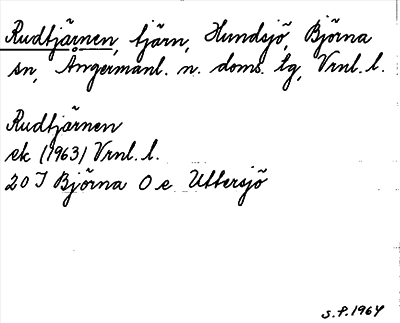 Rudtjärnen, tjärn, Hundsjö, Björna
sn, Ångermanl. n. doms. tg, Vrnl. l.
Rudtjärnen
ek (1963) Vrnl. l.
20 I Björna O e Uttersjö
S.P. 1964